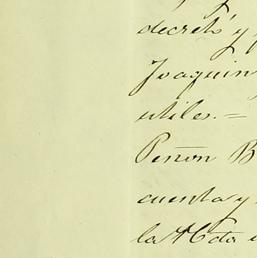 decretó y
Joaquin
utiles. =
Penon B
cuenta y
la